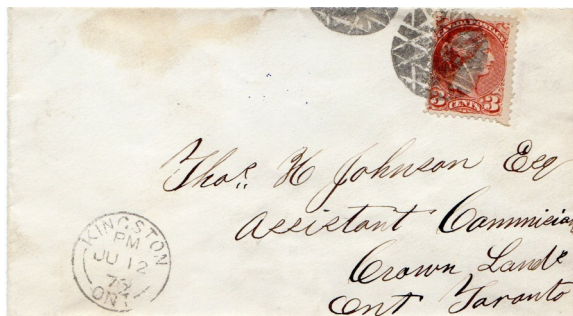 CANADA POSTAGE
3 CENTS 3
Thos. H Johnson Esq
Assistant Commission
Crown Lands
Ont Toronto
KINGSTON
PM
JU 12
ONT